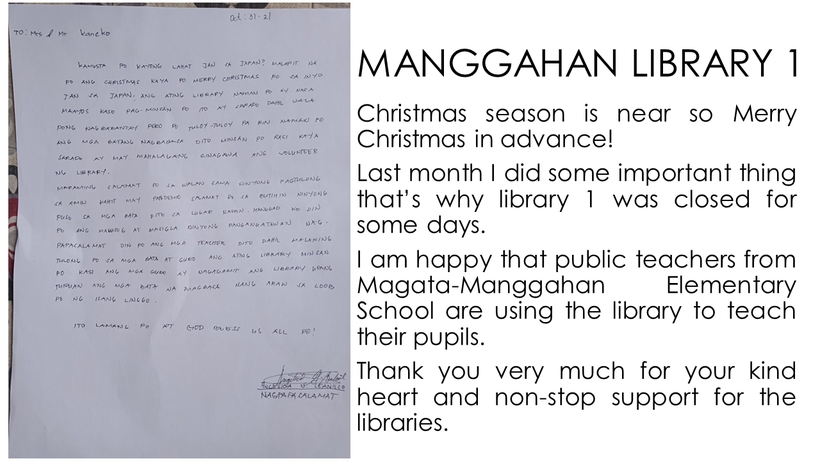 Oct-31-21
TO: Mrs & Mr Kaneko
KAMUSTA PO KAYONG LAHAT JAN SA JAPAN? MALAPIT NA
PO ANG CHRISTMAS KAYA PO MERRY CHRISTMAS PO SA INYO
JAN SA JAPAN. ANG ATING LIBRARY NAMAN PO AY
MAAYOS KASO PAG-MINSAN PO ITO AY SARADO DAHIL WALA
PONG NAGBABANTAY PERO PO TULOY-TULOY PA RIN NAMAN PO
ANG MGA BATANG NAGBABASA DITO MINSAN PO KASI KAYA
SARADO AY MAY MAHALAGANG GINAGAWA ANG VOLUNTEER
NG LIBRARY.
MARAMING SALAMAT PO SA WALAN SAWA NINYONG PAGTULONG
SA AMIN KAHIT MAY PANDEMIC SALAMAT PO SA BUTIHIN NINYONG
PUSO SA MGA BATA DITO SA LUGAR NAMIN HANGGAD KO DIN
PO ANG MABUTI AT MALIGSA NINYONG PANGANGATAWAN NAG-
PAPASALAMAT DIN PO ANG MGA TEACHER DITO DAHIL MALAKING
TULONG PO SA MGA BATA AT GURO ANG ATING LIBRARY MINSAN
PO KASI ANG MGA GURO AY NAGAGAMIT ANG LIBRARY UPANG
TURUAN ANG MGA BATA NA MAGBASA ISANG ARAW SA LOOB
PO NG ISANG LINGGO.
ITO LAMANG PO AT GOD BLESS US ALL PO!
NAGPAPASALAMAT
MANGGAHAN LIBRARY 1
Christmas season is near so Merry
Christmas in advance!
Last month I did some important thing
that's why library 1 was closed for
some days.
I am happy that public teachers from
Magata-Manggahan Elementary
School are using the library to teach
their pupils.
Thank you very much for your kind
heart and non-stop support for the
libraries.